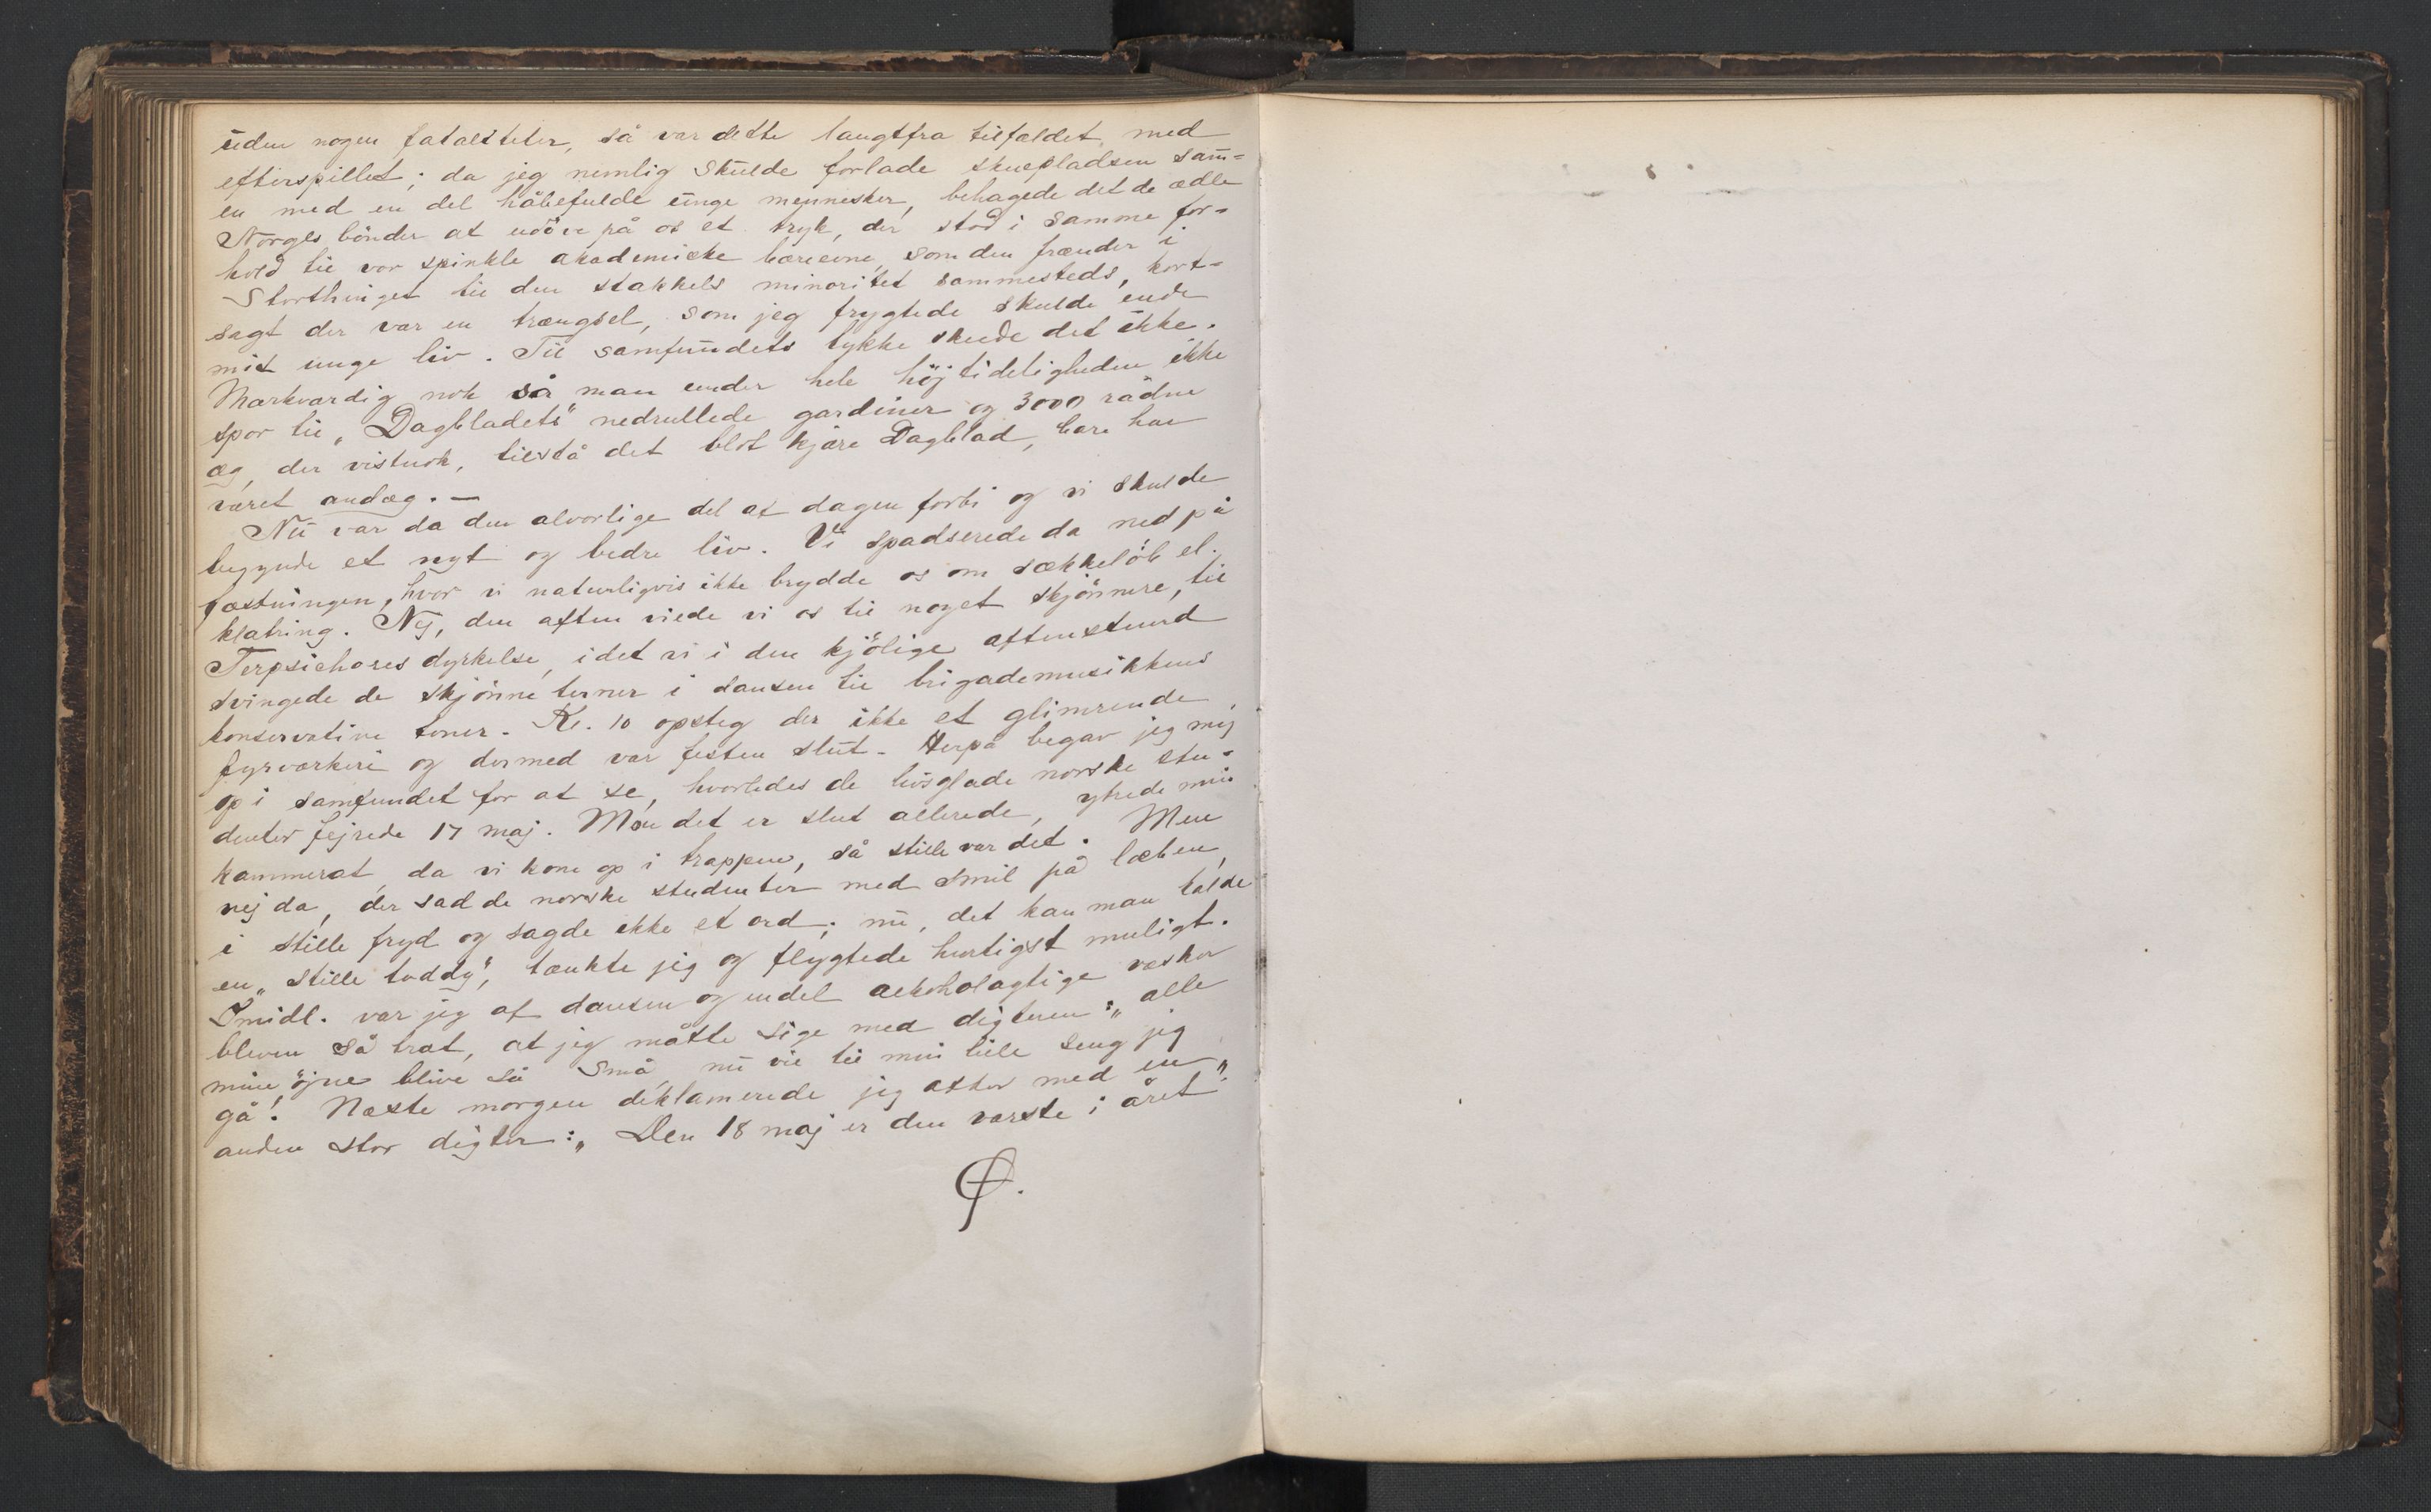 uden nogen fataliteter, så var dette langtfra tilfældet med
efterspillet; da jeg nemlig skulde forlade skuepladsen sam=
en med en del håbefulde unge mennesker, behagede det de ædle
Norges bönder at udöve på os et tryk, der stod i samme for=
hold til vor spinkle akademiske bæreevne, som den frænder i
Storthinget til den stakkels minoritet sammesteds, kort=
sagt der var en trængsel, som jeg frygtede skulde ende
mit unge liv. Til samfundets lykke skede det ikke.
Mærkværdig nok så man under hele höjtideligheden ikke
spor til „Dagbladets" nedrullede gardiner og 3000 rådne
æg, der vistnok, tilstå det blot kjære Dagblad, bare har
været andæg. —
Nu var da den alvorlige del af dagen forbi og vi skulde
begynde et nyt og bedre liv. Vi spadserede da ned på
fæstningen, hvor vi naturligvis ikke brydde os om sækkelöb el.
klatring. Nej, den aften viede vi os til noget skjönnere, til
Terpsichores dyrkelse, idet vi i den kjölige aftenstund
svingede de skjönne terner i dansen til brigademusikkens
konservative toner. Kl. 10 opsteg der ikke et glimrende
fyrværkeri og dermed var festen slut. Herpå begav jeg mig
op i samfundet for at se, hvorledes de livsglade norske stu=
denter fejrede 17 maj. Mon det er slut allerede, ytrede min
kammerat, da vi kom op i trappen, så stille var det. Men
nej da, der sad de norske studenter med smil på læben,
i stille fryd og sagde ikke et ord; nu, det kan man kalde
en „stille toddy", tænkte jeg og flygtede hurtigst muligt.
Imidl. var jeg af dansen og endel alkoholagtige væsker
bleven så træt, at jeg måtte sige med digteren: „alle
mine öjne blive så små, nu vil til min lille seng jeg
gå! Næste morgen deklamerede jeg atter med en
anden stor digter: „Den 18 maj er den værste i året".